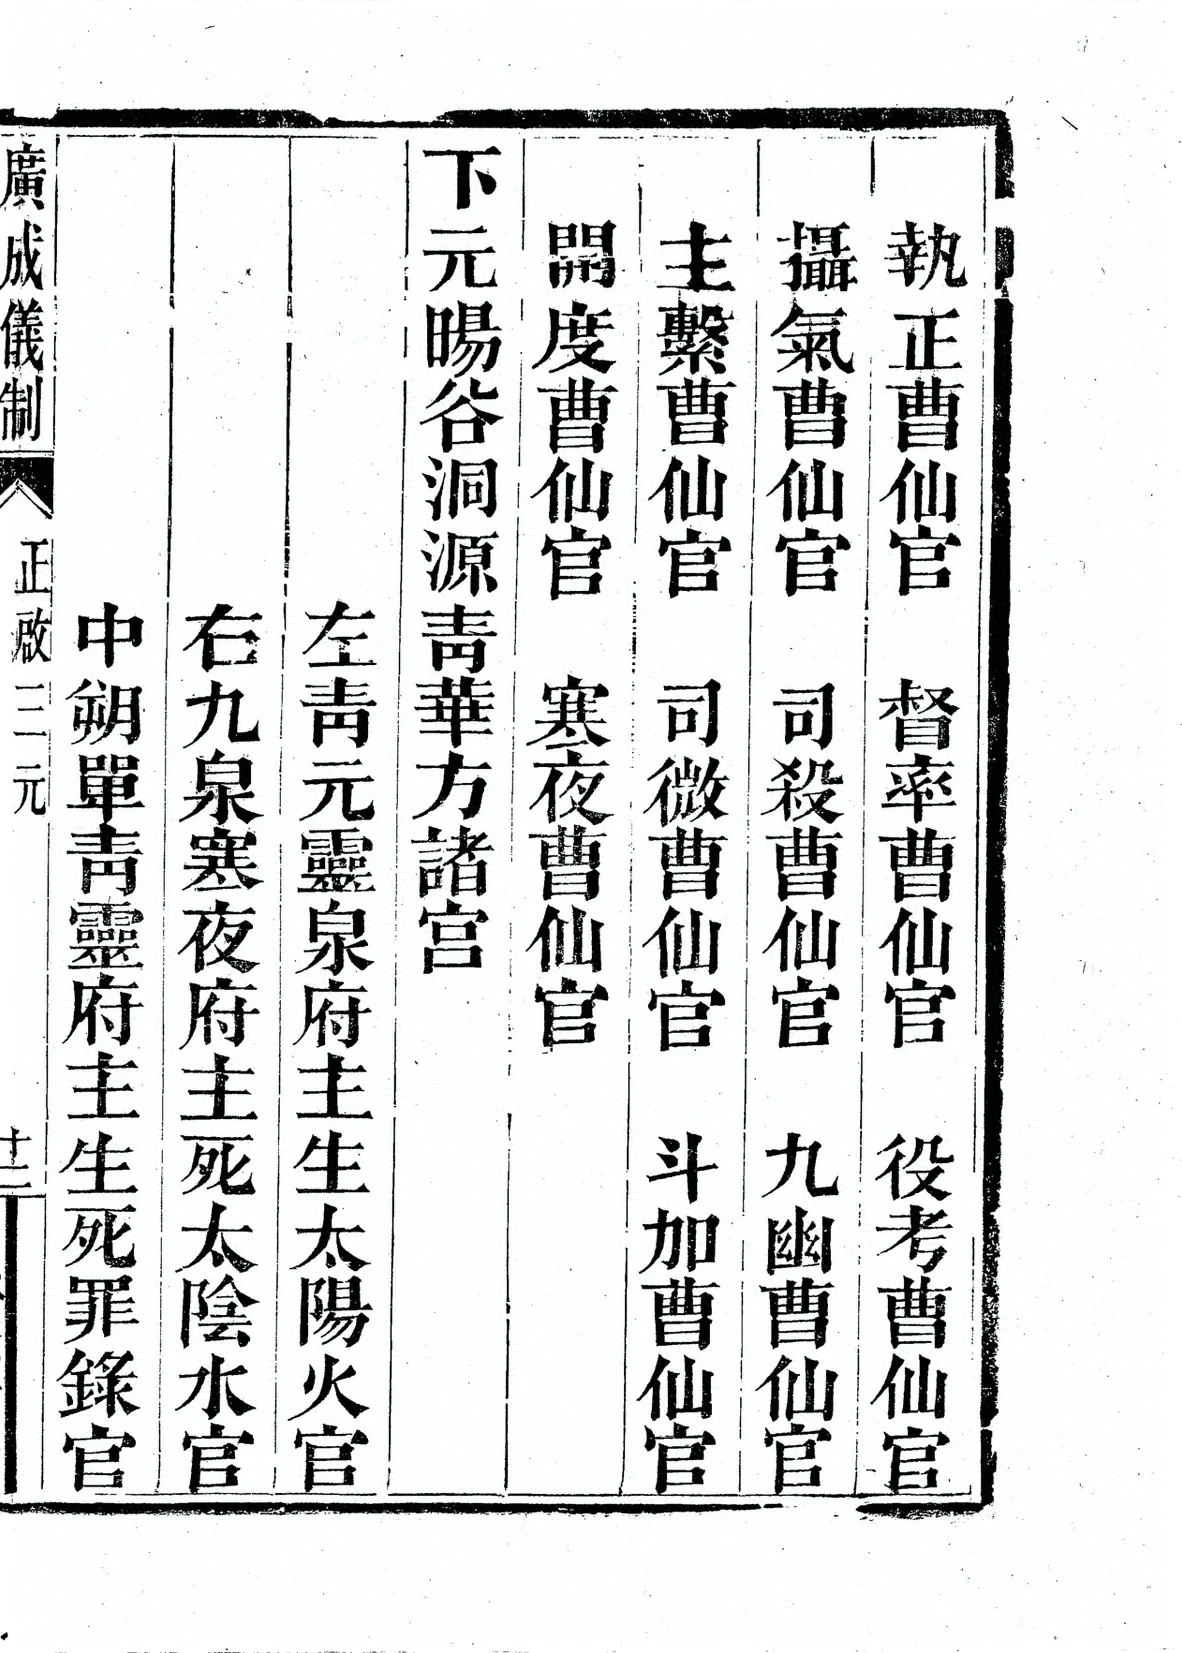 執正曹仙官　督率曹仙官　役考曹仙官
攝氣曹仙官　司殺曹仙官　九幽曹仙官
主繫曹仙官　司微曹仙官　斗加曹仙官
開度曹仙官　寒夜曹仙官
下元暘谷洞源靑華方諸宮
左靑元靈泉府主生太陽火官
右九泉寒夜府主死太陰水官
中朔單靑靈府主生死罪錄官
廣成儀制　正啟三元　十二